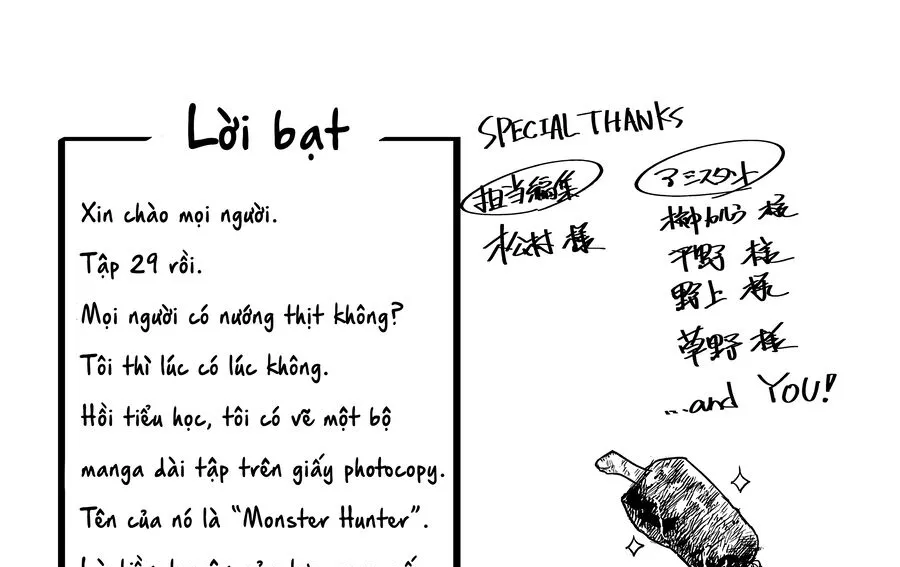 Lời bạt
Xin chào mọi người.
Tập 29 rồi.
Mọi người có nướng thịt không?
Tôi thì lúc có lúc không.
Hồi tiểu học, tôi có vẽ một bộ
manga dài tập trên giấy photocopy.
Tên của nó là “Monster Hunter”.
SPECIAL THANKS
担当編集
松村 様
アシスタント
様
平野 様
野上 様
草野 様
...and YOU!